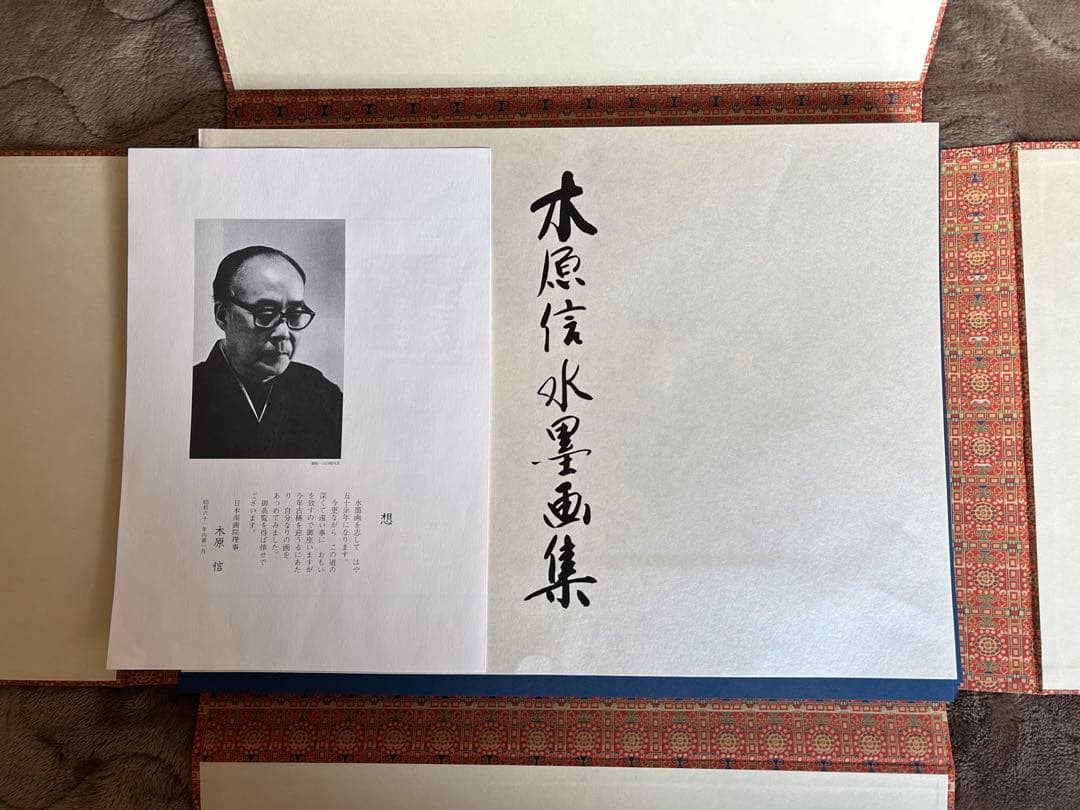 木原信水墨画集
想
水墨画を志して はや
五十余年になります。
今更ながら この道の
深くて遠い事に おもい
を致すので御座いますが
今年古稀を迎うるにあた
り 自分なりの画を
あつめてみました。
御高覧を得ば倖せで
ございます。
日本南画院理事
木原 信
昭和六十一年丙寅一月